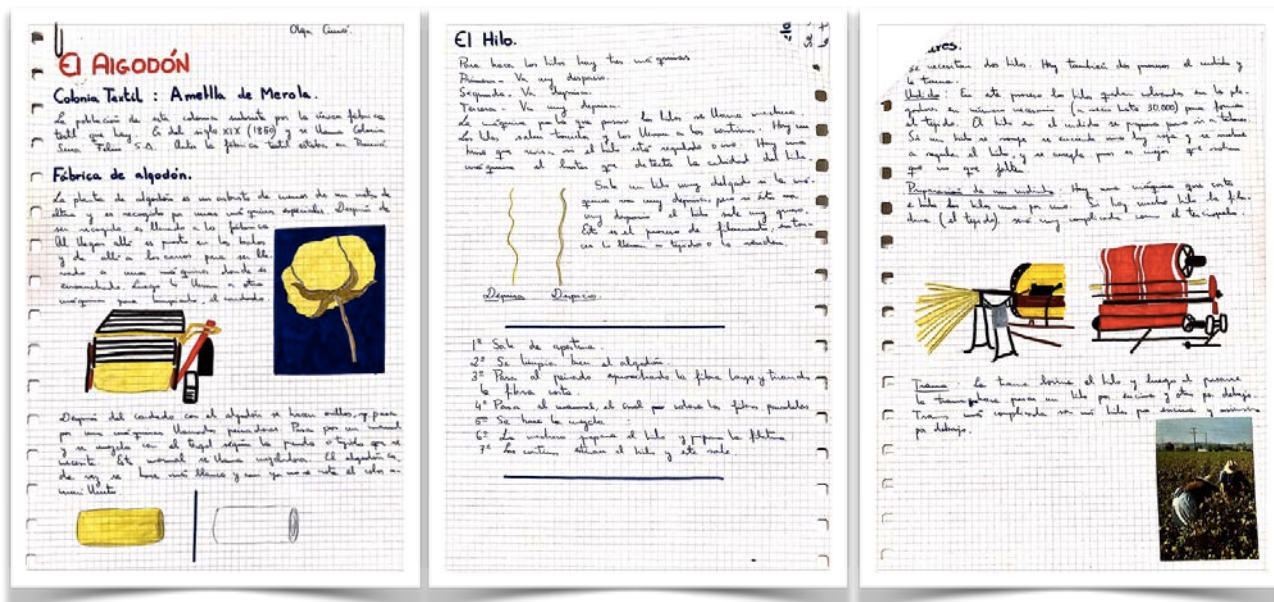 Olga
El AlGODÓN
Colonia Textil : Ametlla de Merola.
La población de esta colonia subsiste por la única fábrica
textil que hay. Es del siglo XIX (1860) y se llama Colonia
Serra Feliu S.A. Antes la fábrica textil estaba en
Fábrica de algodón.
La planta de algodón es un arbusto de menos de un metro de
altura y es recogido por unas máquinas especiales. Después de
ser recogido, es llevado a la fábrica
Al llegar allí es puesto en las balas
y de allí a los carros para ser lle-
vado a unas máquinas donde es
ensanchado. Luego lo llevan a otra
máquina para limpiarlo, el cardado.
Después del cardado con el algodón se hacen rollos, y pasa
por unas máquinas llamadas peinadoras. Pasa por un manual
y se mezcla con el tergal según la prenda o tejido que se
necesite. Este manual se llama mezcladora. El algodón ca-
da vez se hace más blanco y casi ya no se nota el color a-
marillento
El Hilo.
Para hacer los hilos hay tres máquinas
Primera - Va muy despacio.
Segunda - Va deprisa.
Tercera - Va muy deprisa.
La máquina por la que pasan los hilos se llama mechera.
Los hilos salen torcidos y los llevan a las continuas. Hay una
que revisa si el hilo está regulado o no. Hay una
máquina el que detecta la calidad del hilo.
Sale un hilo muy delgado si la má-
quina va muy deprisa, pero si ésta va
muy despacio el hilo sale muy grueso.
Este es el proceso de filamento, enton-
ces lo llevan a tejidos o lo venden.
Deprisa Despacio.
1º Sala de apertura.
2º Se limpia bien el algodón.
3º Pasa al peinado aprovechando la fibra larga y tirando
la fibra corta.
4º Pasa al manual, el cual coloca las fibras paralelas
5º Se hace la mezcla
6º La mechera prepara el hilo y prepara la
7º Las continuas estiran el hilo y éste sale.
ares.
se necesitan dos hilos. Hay también dos procesos el urdido y
la trama.
Urdido: En este proceso los hilos quedan colocados en los ple-
gadores en número necesario (a veces hasta 30.000) para formar
el tejido. Al hilo en el urdido se prepara para ir a telares.
Si un hilo se rompe se enciende una luz roja y se vuelve
a regular el hilo, y se arregla pues es mejor que sobren
que no que falten
Preparación de un urdido: Hay una máquina que corta
e hila los hilos uno por uno. Si hay mucho hilo la fila-
dura (el tejido) será muy complicada como el terciopelo.
Trama: La trama forma el hilo, y luego al pasarse
la trama pasar un hilo por encima y otro por debajo.
Trama más complicada son más hilos por encima y
por debajo.